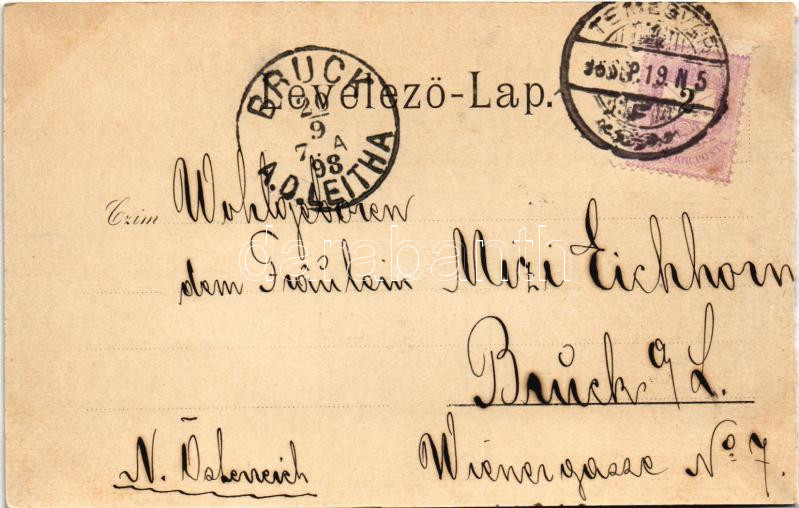 Levelezö-Lap.
TEMESVÁR
98 SEP. 19. N 5
2
BRUCK
20
9
7. A
98
A.D. LEITHA
Czim
Wohlgeboren
dem Fräulein Mizi Eichhorn
Bruck a/L.
N. Österreich
Wienergasse No 7.
darabanth